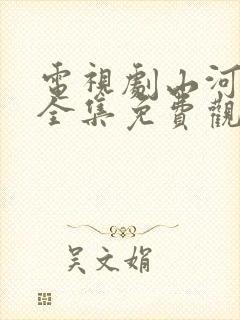 電視劇山河
全集免費觀
吴文娟